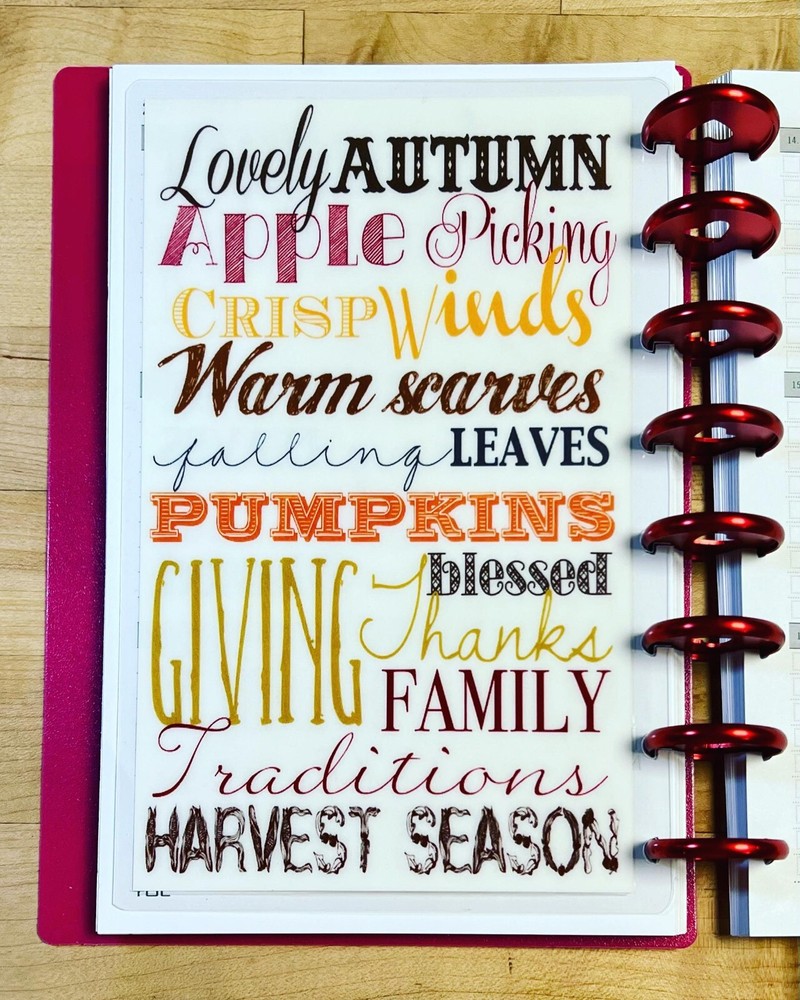 Lovely AUTUMN
Apple Picking
CRISP Winds
Warm scarves
falling LEAVES
PUMPKINS
blessed
GIVING Thanks
FAMILY
Traditions
HARVEST SEASON
14
15